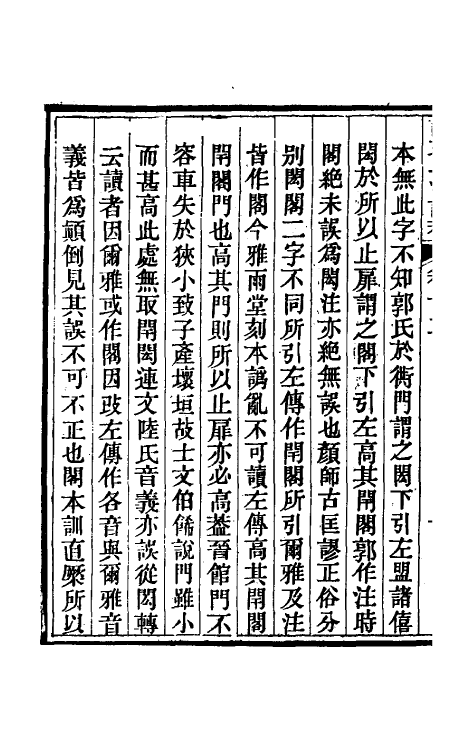 本無此字不知郭氏於衖門謂之閎下引左盟諸僖
閎於所以止扉謂之閣下引左高其閈閣郭作注時
閣絶未誤爲閎注亦絶無誤也顏師古匡謬正俗分
別閎閣二字不同所引左傳作閈閣所引爾雅及注
皆作閣今雅雨堂刻本譌亂不可讀左傳高其閈閣
閈閣門也高其門則所以止扉亦必高葢晉館門不
容車失於狹小致子產壞垣故士文伯俻說門雖小
而甚高此處無取閈閎連文陸氏音義亦誤從閎轉
云讀者因爾雅或作閣因改左傳作各音與爾雅音
義皆爲顚倒見其誤不可不正也閣本訓直橜所以